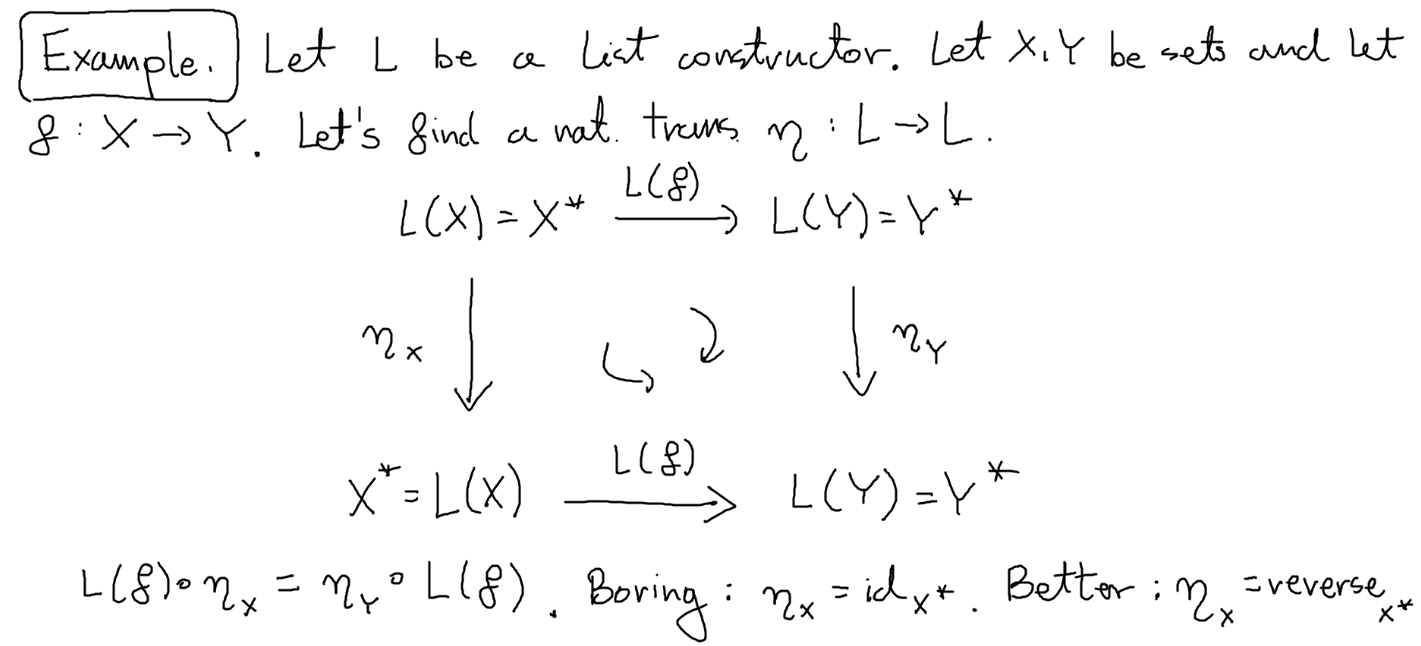 Example. Let L be a list constructor. Let X, Y be sets and let
f : X → Y. Let's find a nat. trans. η : L → L.
L(f)
L(X) = X* → L(Y) = Y*
η_X η_Y
L(f)
X* = L(X) → L(Y) = Y*
L(f) ∘ η_X = η_Y ∘ L(f). Boring : η_X = id_X*. Better : η_X = reverse_X*